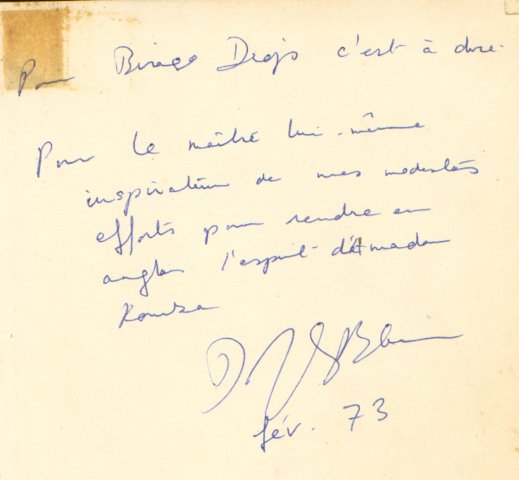 Pour Birago Diop c'est à dire
Pour le maître lui-même
inspirateur de mes modestes
efforts pour rendre en
anglais l'esprit d'Amadou
Koumba
Blair
fév. 73